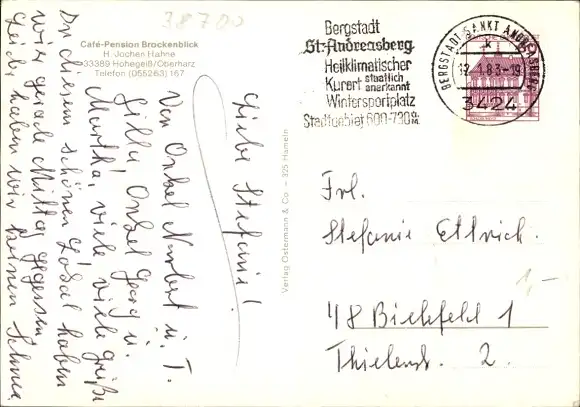 38700
Café-Pension Brockenblick
H. Jochen Hahne
33389 Hohegeiß/Oberharz
Telefon (055263) 167
Liebe Stefanie!
Von Onkel Norbert u. T.
Gilla, Onkel Georg u.
Martha, viele viele Grüße
In diesem schönen Lokal haben
wir gerade Mittag gegessen
Leider haben wir keinen Schnee
Verlag Ostermann & Co - 325 Hameln
Bergstadt
St. Andreasberg
Heilklimatischer
Kurort staatlich
anerkannt
Wintersportplatz
Stadtgebiet 600-730 m
BERGSTADT SANKT ANDREASBERG
k
3424
Frl.
Stefanie Ellrich.
48 Bielefeld 1
Thielenstr. 2.
1,-